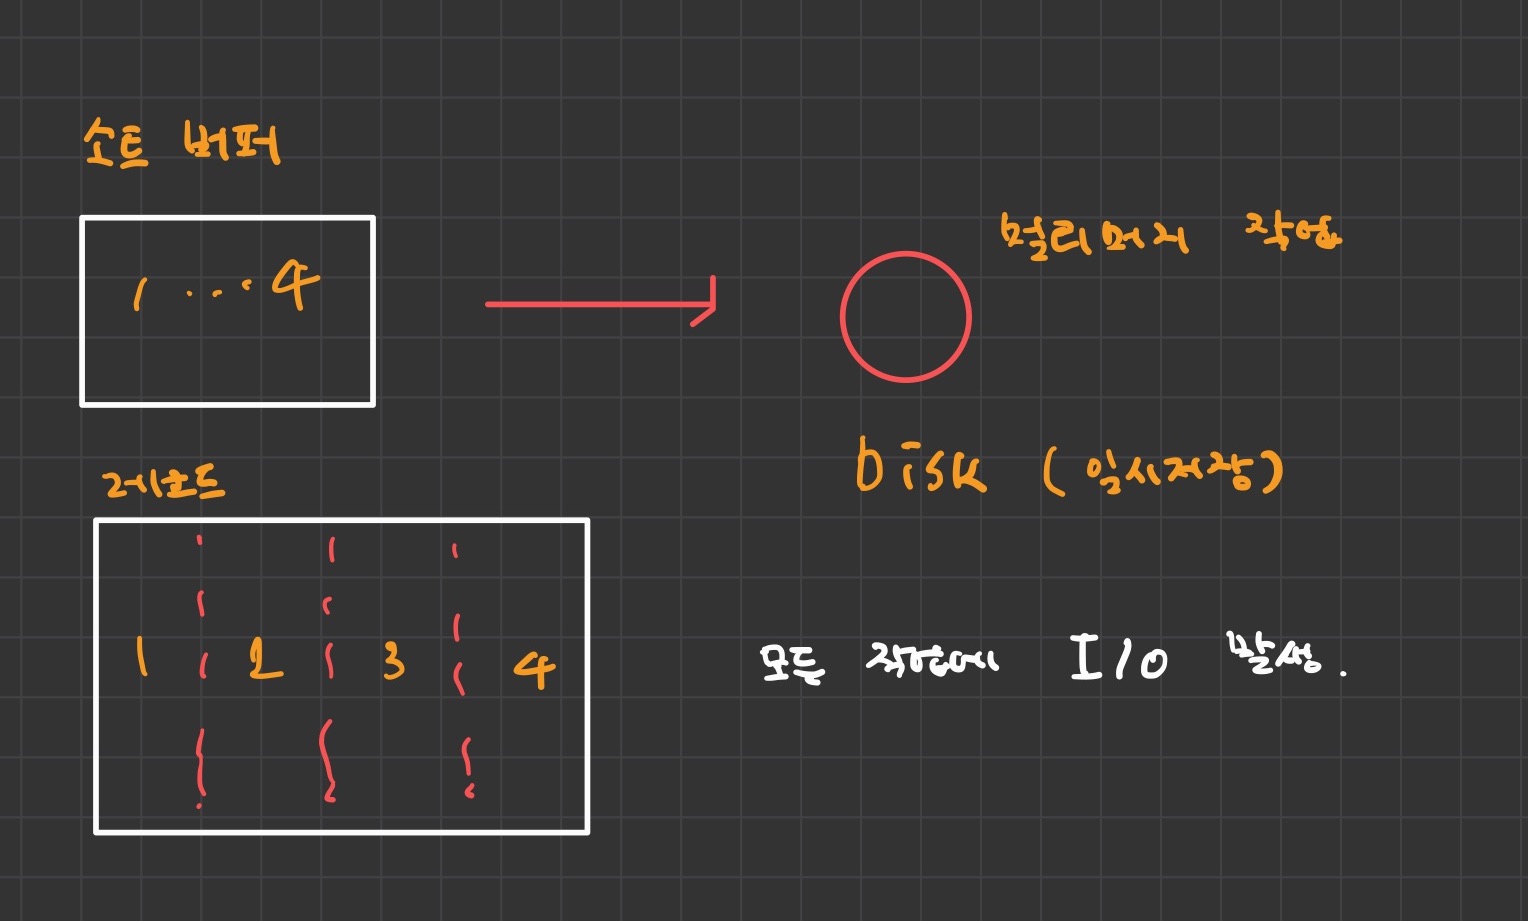 소트 버퍼
1 ... 4
멀티머지 작업
Disk (임시저장)
레코드
1 2 3 4
모든 작업에 I/O 발생.